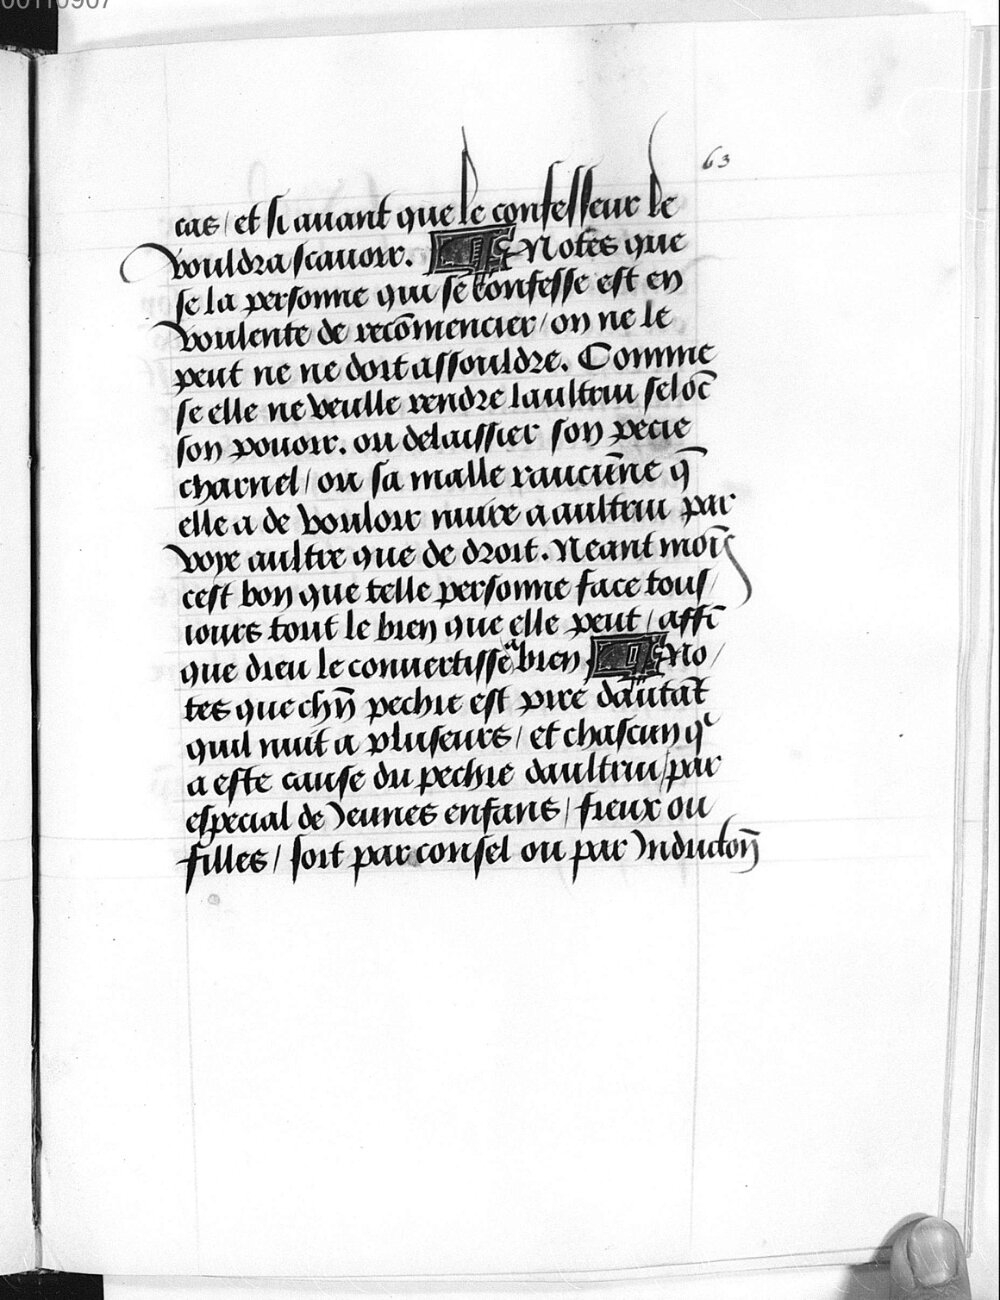 00110907
63
cas / et si auant que le confesseur le
vouldra scauoir. Notes que
se la personne qui se confesse est en
voulente de recõmencier / on ne le
peut ne ne doit assouldre. Comme
se elle ne veulle rendre laultrui selõc
son pouoir. ou delaissier son pecie
charnel / ou sa malle rancũne q̃
elle a de vouloir nuire a aultrui par
voye aultre que de droit. Neant moĩs
cest bon que telle personne face tous /
iours tout le bien que elle peut / affĩ
que dieu le conuertisse a bien No /
tes que chũ pechie est pire dautãt
quil nuit a pluseurs / et chascun q
a este cause du pechie daultrui / par
especial de Jeunes enfans / fieux ou
filles / soit par consel ou par Inductoñ